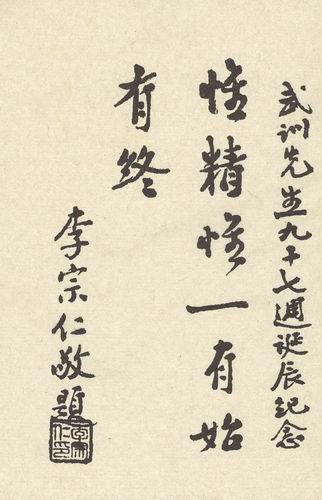 武训先生九十七週诞辰纪念
惟精惟一有始
有终
李宗仁敬题